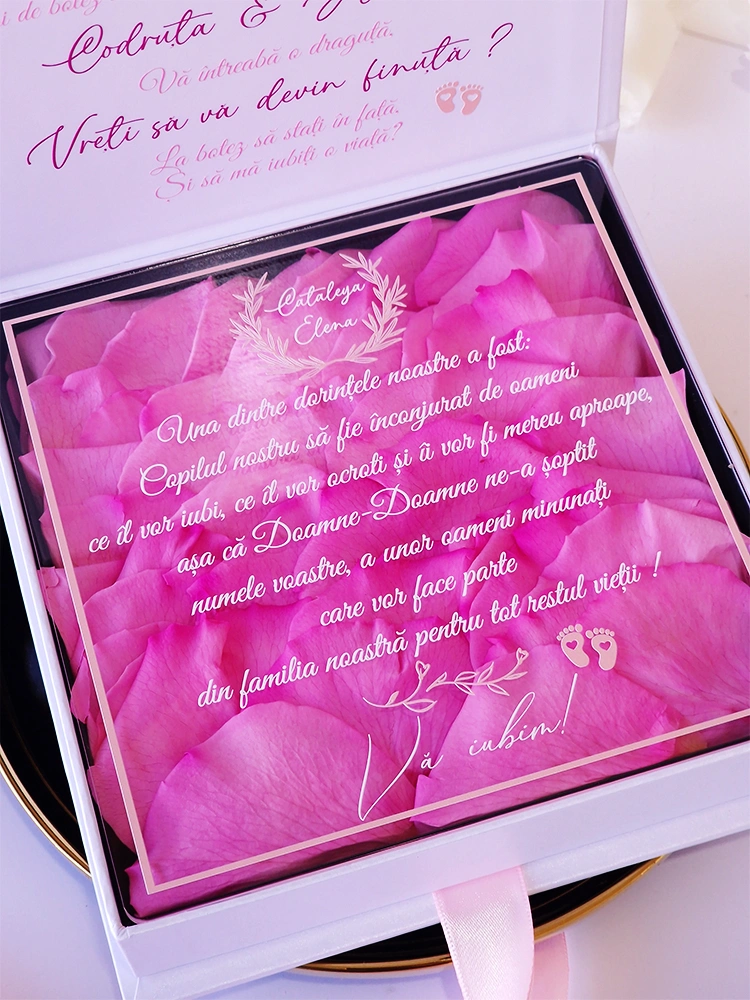 de botez
Codruța &
Vă întreabă o draguță,
Vreți să vă devin finuță ?
La botez să stați în față,
Și să mă iubiți o viață?
Cataleya
Elena
Una dintre dorințele noastre a fost:
Copilul nostru să fie înconjurat de oameni
ce îl vor iubi, ce îl vor ocroti și îi vor fi mereu aproape,
așa că Doamne-Doamne ne-a șoptit
numele voastre, a unor oameni minunați
care vor face parte
din familia noastră pentru tot restul vieții !
Vă iubim!